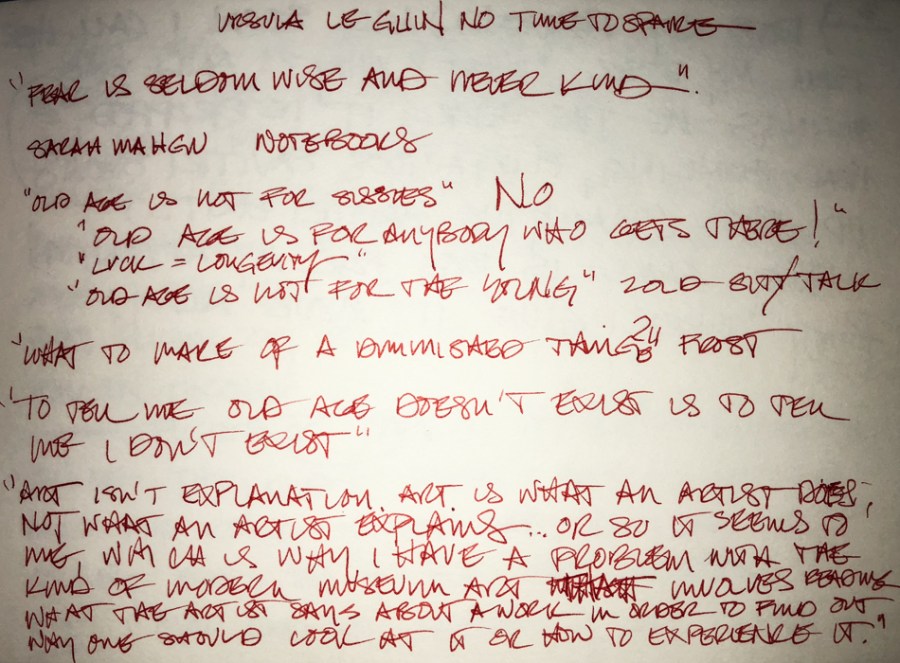 URSULA LE GUIN NO TIME TO SPARE
"FEAR IS SELDOM WISE AND NEVER KIND".
SARAH NOTEBOOKS
"OLD AGE IS NOT FOR SISSIES" NO
"OLD AGE IS FOR ANYBODY WHO GETS THERE!"
"LUCK = LONGEVITY"
"OLD AGE IS NOT FOR THE YOUNG" OLD TALK
"WHAT TO MAKE OF A DIMINISHED THING" FROST
"TO TELL ME OLD AGE DOESN'T EXIST IS TO TELL
ME I DON'T EXIST"
"ART ISN'T EXPLANATION. ART IS WHAT AN ARTIST DOES,
NOT WHAT AN ARTIST EXPLAINS... OR SO IT SEEMS TO
ME, WHICH IS WHY I HAVE A PROBLEM WITH THE
KIND OF MODERN MUSEUM ART INVOLVES READING
WHAT THE ARTIST SAYS ABOUT A WORK IN ORDER TO FIND OUT
WHY ONE SHOULD LOOK AT IT OR HOW TO EXPERIENCE IT."